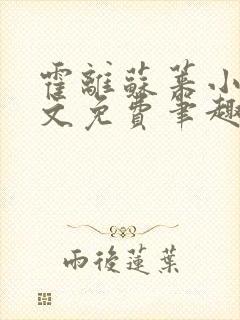 霍離蘇蓁小
文免費筆趣
雨後蓮葉